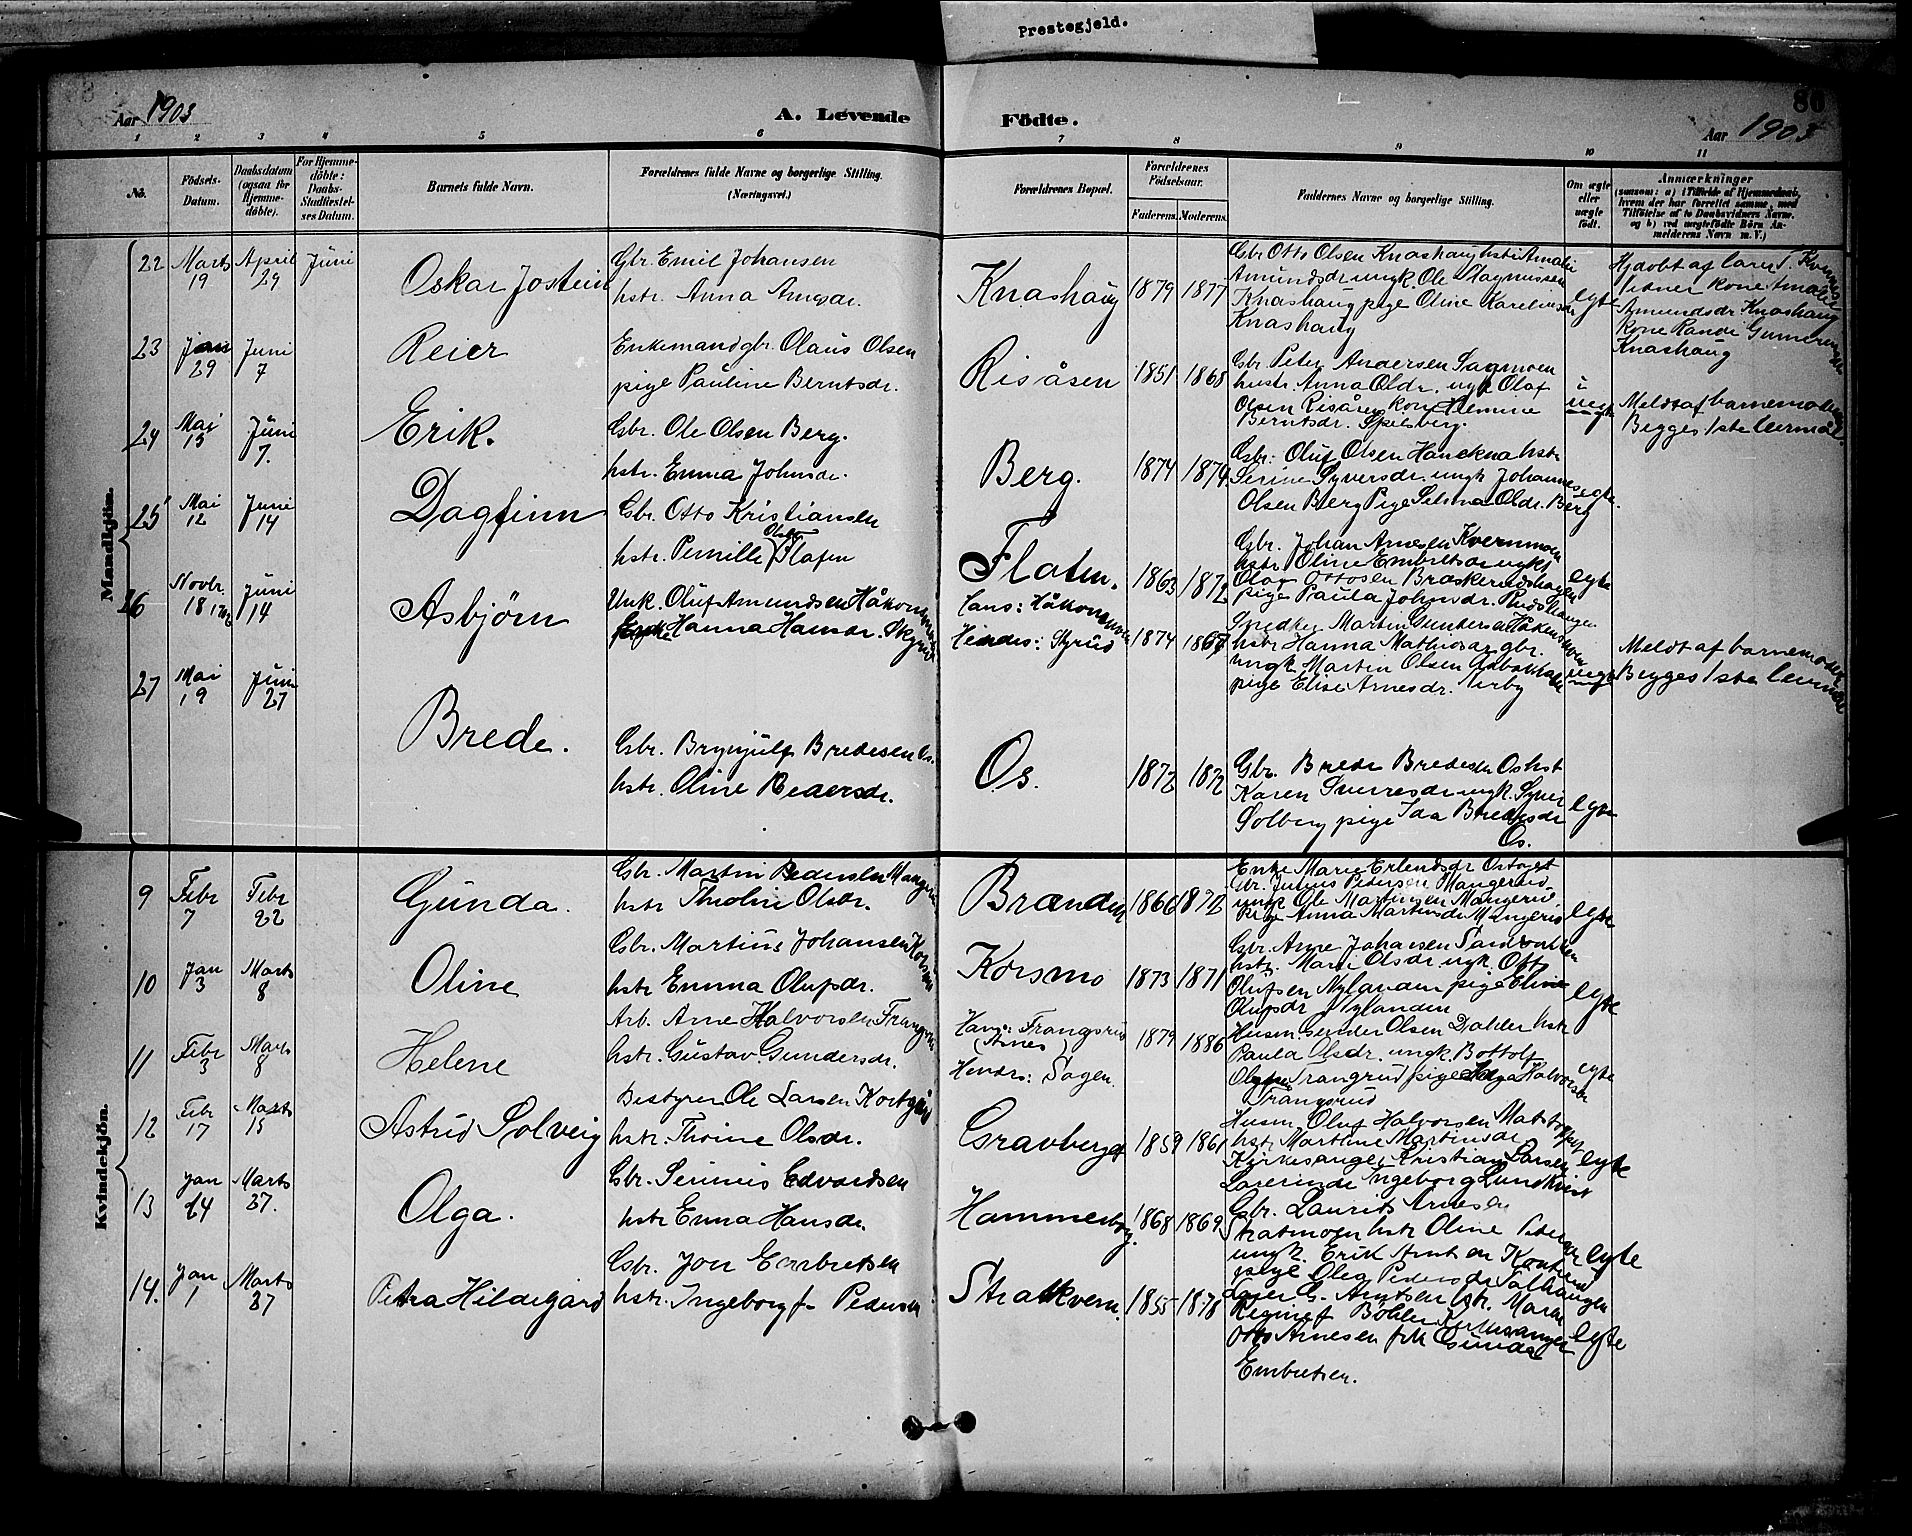 Prestegjeld.
80
Aar 1903
A. Levende
Födte.
Aar 1903
1 2 3 4 5 6 7 8 9 10 11
No.
Födsels-
Datum.
Daabsdatum
(ogsaa for
Hjemme-
döbte).
For Hjemme-
döbte:
Daabs-
Stadfæstel-
ses Datum.
Barnets fulde Navn.
Forældrenes fulde Navne og borgerlige Stilling.
(Næringsvei.)
Forældrenes Bopæl.
Forældrenes
Födselsaar.
Faderens. Moderens.
Faddernes Navne og borgerlige Stilling.
Om ægte
eller
uægte
födt.
Anmærkninger
(saasom: a) i Tilfælde af Hjemmedaab,
hvem der har forrettet samme, med
Tilföielse af to Daabsvidners Navne.
og b) ved uægtefödte Börn An-
melderens Navn m. V.)
Mandkjön.
22 Marts 19 April 29 Juni
Oskar Jostein
Gbr. Emil Johansen
hstr. Anna Arnesdr.
Knashaug 1879 1877
Gbr Otto Olsen Knashaug hstr Amalie
Amundsdr ungk Ole Magnussen
Knashaug pige Oline Karelius dr
Knashaug
egte
Hjdøbt af lærer T. Kvernmo
vidner kone Amalie
Amundsdr Knashaug
kone Randi Gunerius
Knashaug
23 Jan 29 Juni 7
Reier
Enkemand gbr. Olaus Olsen
pige Pauline Berntsdr.
Risåsen 1851 1868
Gbr Peter Andersen Sagmoen
hustr Anna Oldr. ungk Olaf
Olsen Risåsen kone Hemine
Berntsdr. Spilsberg.
uegte
Meldt af barnemoderen
Begges 1ste leiermål.
24 Mai 15 Juni 7.
Erik.
Gbr. Ole Olsen Berg.
hstr. Emma Johnsdr.
Berg. 1874 1874
Gbr. Oluf Olsen Haneknahstr
Serine Syversdr. ungk Johannes
Olsen Berg Pige Selma Oldr. Berg
egte.
25 Mai 12 Juni 14
Dagfinn
Gbr. Otto Kristiansen
hstr. Pernille Olsdr Flaten
Flaten. 1863 1872
Gbr. Johan Arnesen Kvernmoen
hstr Oline Embretsdr ungk
Olaf Ottosen Braskerudshagen
pige Paula Johnsdr. Rudshaugen
egte
26 Novbr 18 1902 Juni 14
Asbjörn
Unk. Oluf Amundsen Håkonsmoen
Hanna Hansdr.
Hans: Håkonsmoen
Hendes: Skyrud
1874 1867
Snedker Martin Gundersen Håkensmoen
hstr Hanna Mathiasdr gbr.
ungk Martin Olsen
pige Elise Arnesdr. Nerby
uegte
Meldt af barnemoderen
Begges 1ste leiermål
27 Mai 19 Juni 27
Brede.
Gbr. Brynjulf Bredesen Os.
hstr. Oline Pedersdr.
Os. 1872 1872
Gbr. Brede Bredesen Os hst
Karen Sverresdr ungk. Syver
Solberg pige Ida Bredesdr
Os.
egte
Kvindekjön.
9 Febr 7 Febr 22
Gunda.
Gbr. Martin Pedersen Mangerud
hstr Theoline Olsdr.
Branden 1866 1872
Enke Marie Erlendsdr
Gbr. Julius Pedersen Mangerud
ungk Ole Martinsen Mangerud,
Pige Anna Martinsdr Mangerud
egte
10 Jan 3 Marts 8
Oline
Gbr. Martius Johansen Korsmo
hstr Emma Olufsdr.
Korsmo 1873 1871
Gbr. Arne Johansen
hstr. Marie Olsdr. ungk. Otto
Olufsen Nylanden pige Eline
Olufsdr Nylanden
egte
11 Febr 3 Marts 8
Helene
Arb. Arne Halvorsen Frangsrud
hstr. Gustav. Gundersdr.
Hans: Frangsrud
(Åsnes)
Hendes: Sagen.
1879 1886
Husm. Gunder Olsen Dahlen hstr
Paula Olsdr. ungk. Bottolf
Olsen Frangsrud pige Helga Halvorsdr
Frangsrud
egte
12 Febr 17 Marts 15
Astrid Solveig
Bestyrer Ole Larsen
hstr. Thorine Olsdr.
Gravberget 1859 1861
Husm Oluf Halvorsen
hstr Martine Martinsdr
Kirkesanger Kristian Larsen
Lærerinde Ingeborg Lundkvist
egte
13 Jan 24 Marts 27.
Olga.
Gbr. Serinus Edvardsen
hstr Emma Hansdr.
Hammerberg. 1868 1869
Gbr. Laurits Arnesen
Stratmoen hstr Oline
ungk. Erik Arntsen
pige Olea Pedersdr Solhaugen
egte
14. Jan 1 Marts 27
Petra Hildegard
Gbr. Jon Embretsen
hstr. Ingeborg f. Pedersen
Stratkvern. 1855 1878
Lærer G. Arntsen hstr. Marie
Regine f Bøhler Kirkesanger
Otto Arnesen frk Gunda
Embretsen.
egte